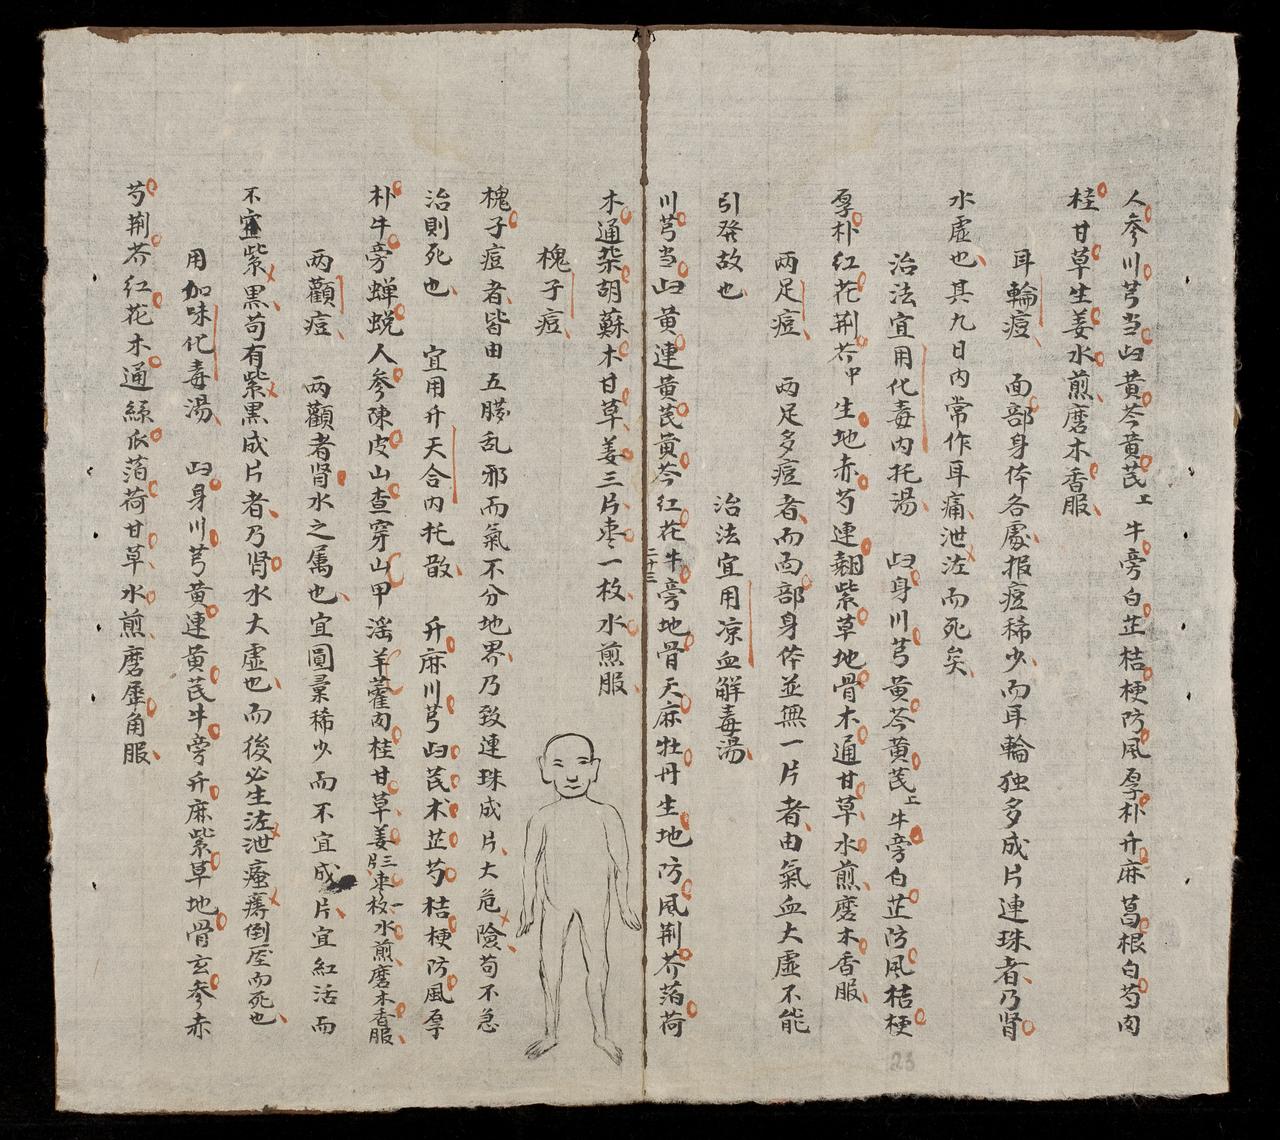 人參川芎当归黄芩黄芪上牛旁白芷桔梗防風厚朴升麻葛根白芍肉
桂甘草生姜水煎磨木香服
耳輪痘 面部身体各處报痘稀少而耳輪独多成片連珠者乃肾
水虛也其九日内常作耳痛泄泻而死矣
治法宜用化毒内托湯 归身川芎黄芩黄芪上牛旁白芷防風桔梗
厚朴紅花荆芥中生地赤芍連翹紫草地骨木通甘草水煎磨木香服
两足痘 两足多痘者而面部身体並無一片者由氣血大虛不能
引発故也 治法宜用凉血解毒湯
川芎当归黄連黄芪黄芩紅花牛旁地骨天麻牡丹生地防風荆芥萡荷
二十三
木通柴胡蘇木甘草姜三片枣一枚水煎服
槐子痘
槐子痘者皆由五臟乱邪而氣不分地界乃致連珠成片大危險苟不急
治則死也 宜用升天合内托散 升麻川芎归芪术芷芍桔梗防風厚
朴牛旁蝉蜕人參陳皮山查穿山甲滛羊藿肉桂甘草姜三片枣一枚水煎磨木香服
两顴痘 两顴者肾水之属也宜圓彙稀少而不宜成片宜紅活而
不宜紫黒苟有紫黒成片者乃肾水大虛也而後必生泻泄癢瘠倒壓而死也
用加味化毒湯 归身川芎黄連黄芪牛旁升麻紫草地骨玄參赤
芍荆芥紅花木通絲瓜萡荷甘草水煎磨犀角服
23